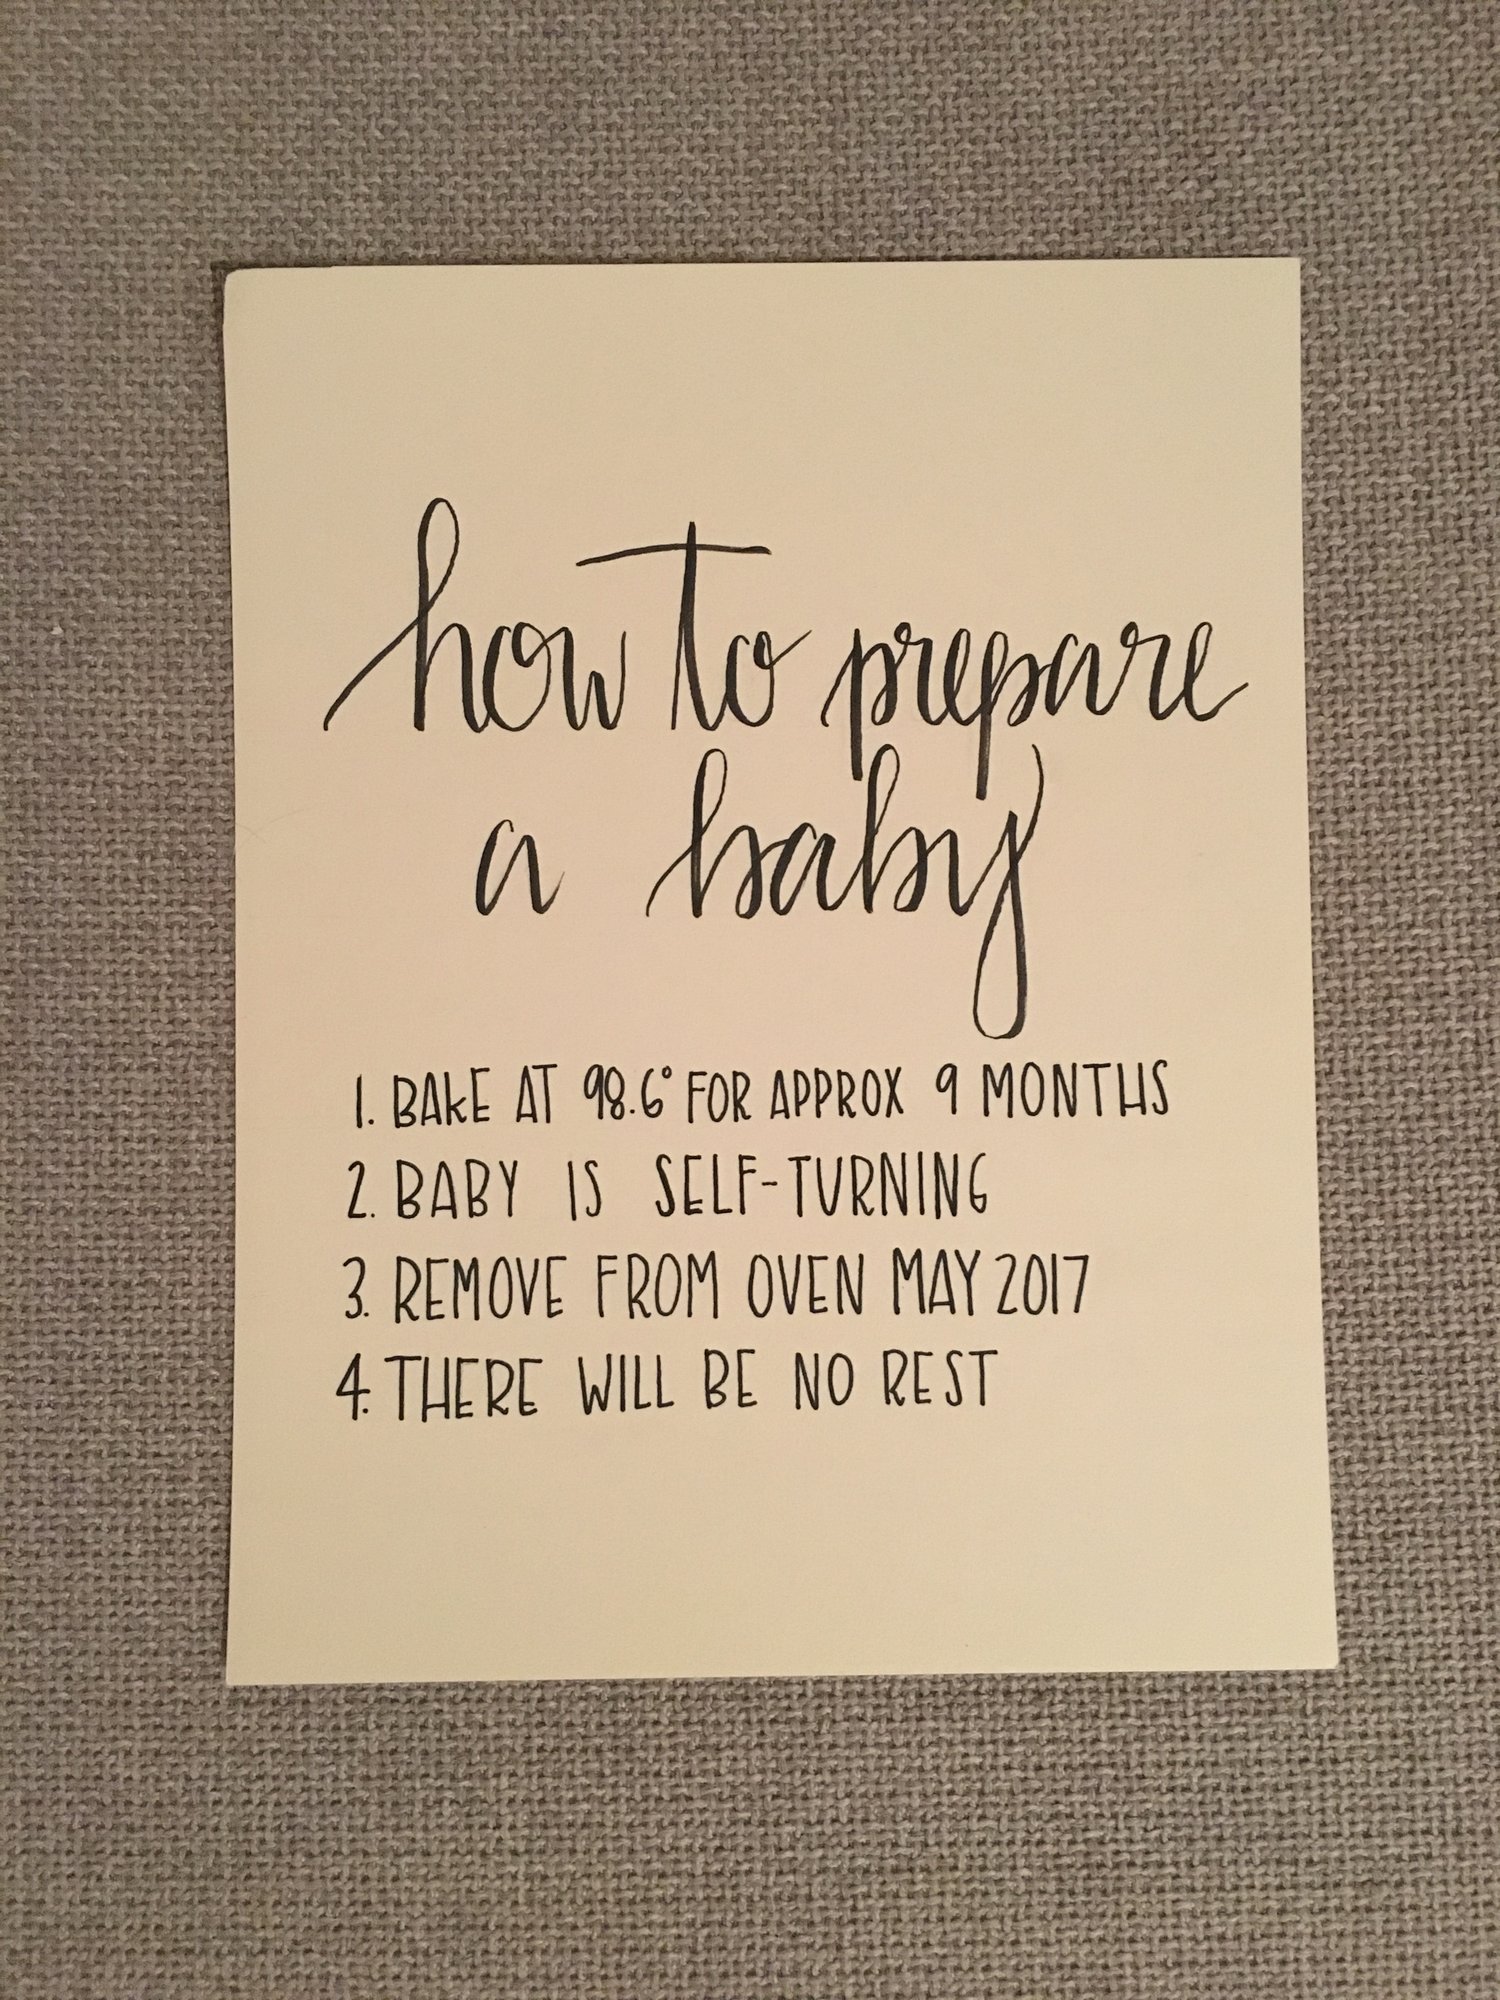 how to prepare
a baby
1. BAKE AT 98.6° FOR APPROX 9 MONTHS
2. BABY IS SELF-TURNING
3. REMOVE FROM OVEN MAY 2017
4. THERE WILL BE NO REST